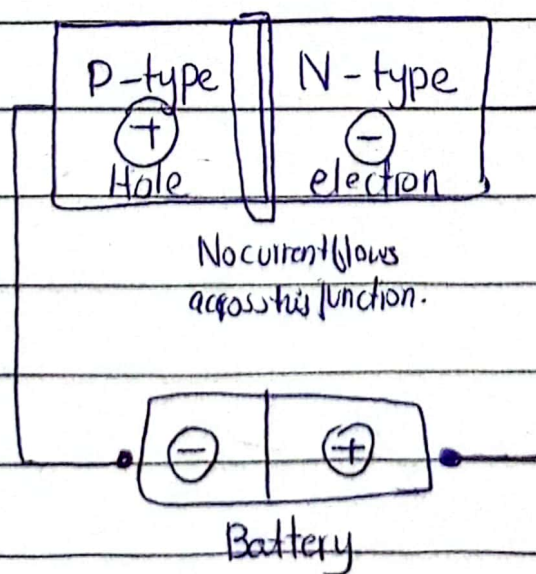 P-type N-type
+ -
Hole election
No current flows
across this junction.
- +
Battery